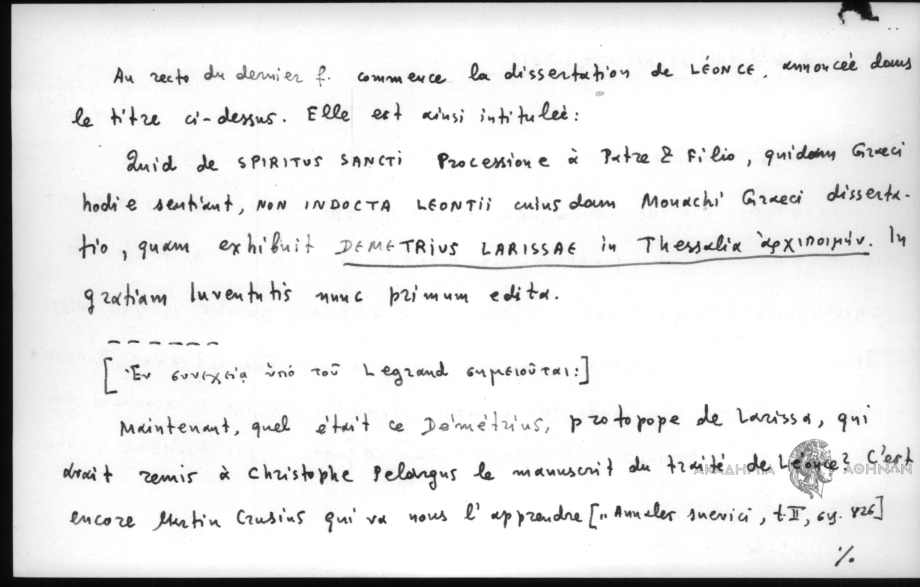 Au recto du dernier f. commence la dissertation de LÉONCE, annoncée dans
le titre ci-dessus. Elle est ainsi intitulée:
Quid de SPIRITUS SANCTI Processione à Patre & Filio, quidam Graeci
hodie sentiant, NON INDOCTA LEONTII cuiusdam Monachi Graeci disserta-
tio, quam exhibuit DEMETRIUS LARISSAE in Thessalia ἀρχιποιμήν. In
gratiam Iuventutis nunc primum edita.
[Ἐν συνεχείᾳ ὑπό τοῦ Legrand σημειοῦται:]
Maintenant, quel était ce Démétrius, protopope de Larissa, qui
avait remis à Christophe Pelargus le manuscrit du traité de Léonce? C'est
ΑΚΑΔΗΜΙΑ ΑΘΗΝΩΝ
encore Martin Crusius qui va nous l'apprendre [„Annales suevici, t.II, σγ. 826]
%